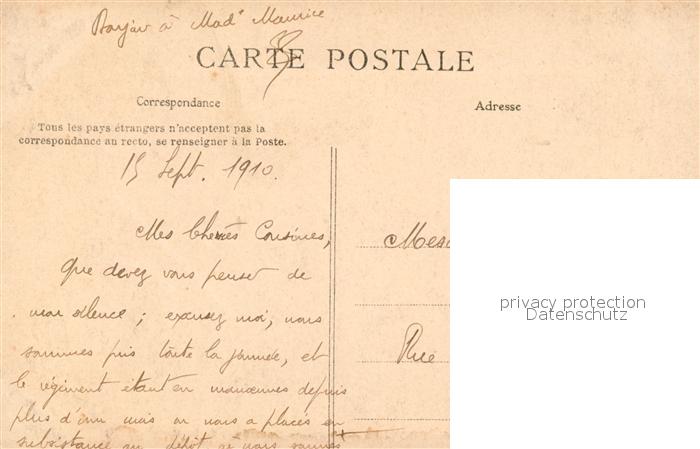 Bonjour à Mad^e Maurice
CARTE POSTALE
Correspondance
Adresse
Tous les pays étrangers n'acceptent pas la
correspondance au recto, se renseigner à la Poste.
15 Sept. 1910.
Mes Chères Cousines,
Que devez vous penser de
mon silence ; excusez moi, nous
sommes pris toute la journée, et
le régiment étant en manœuvres depuis
plus d'un mois on nous a placés en
subsistance au dépôt où nous sommes
Mes
Rue
privacy protection
Datenschutz